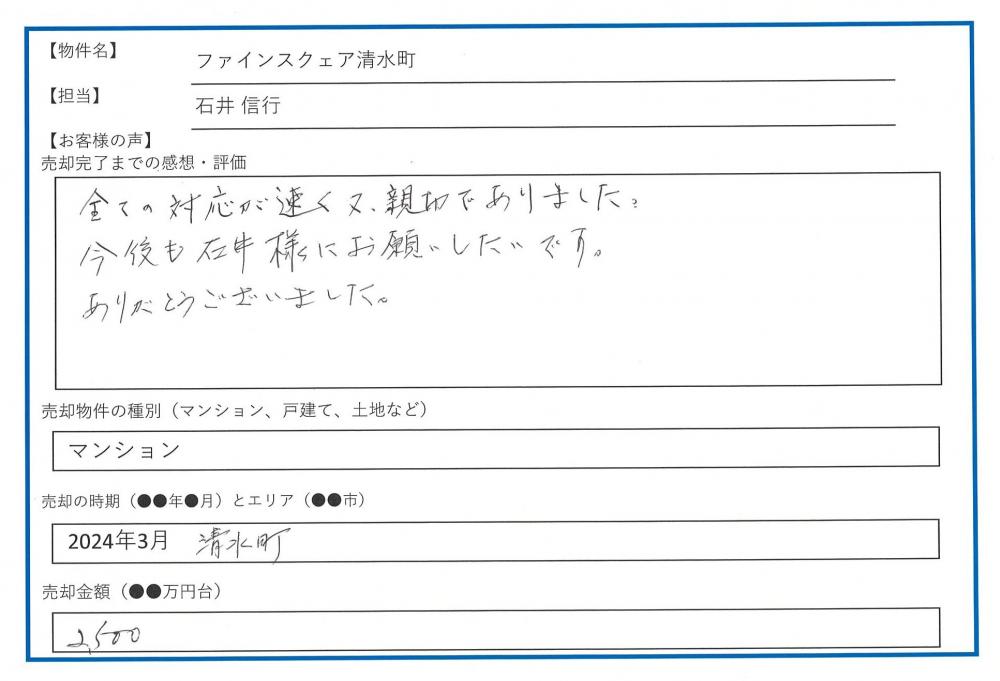 【物件名】
ファインスクェア清水町
【担当】
石井 信行
【お客様の声】
売却完了までの感想・評価
全ての対応が速く又、親切でありました。
今後も石井様にお願いしたいです。
ありがとうございました。
売却物件の種別（マンション、戸建て、土地など）
マンション
売却の時期（●●年●月）とエリア（●●市）
2024年3月 清水町
売却金額（●●万円台）
2,500